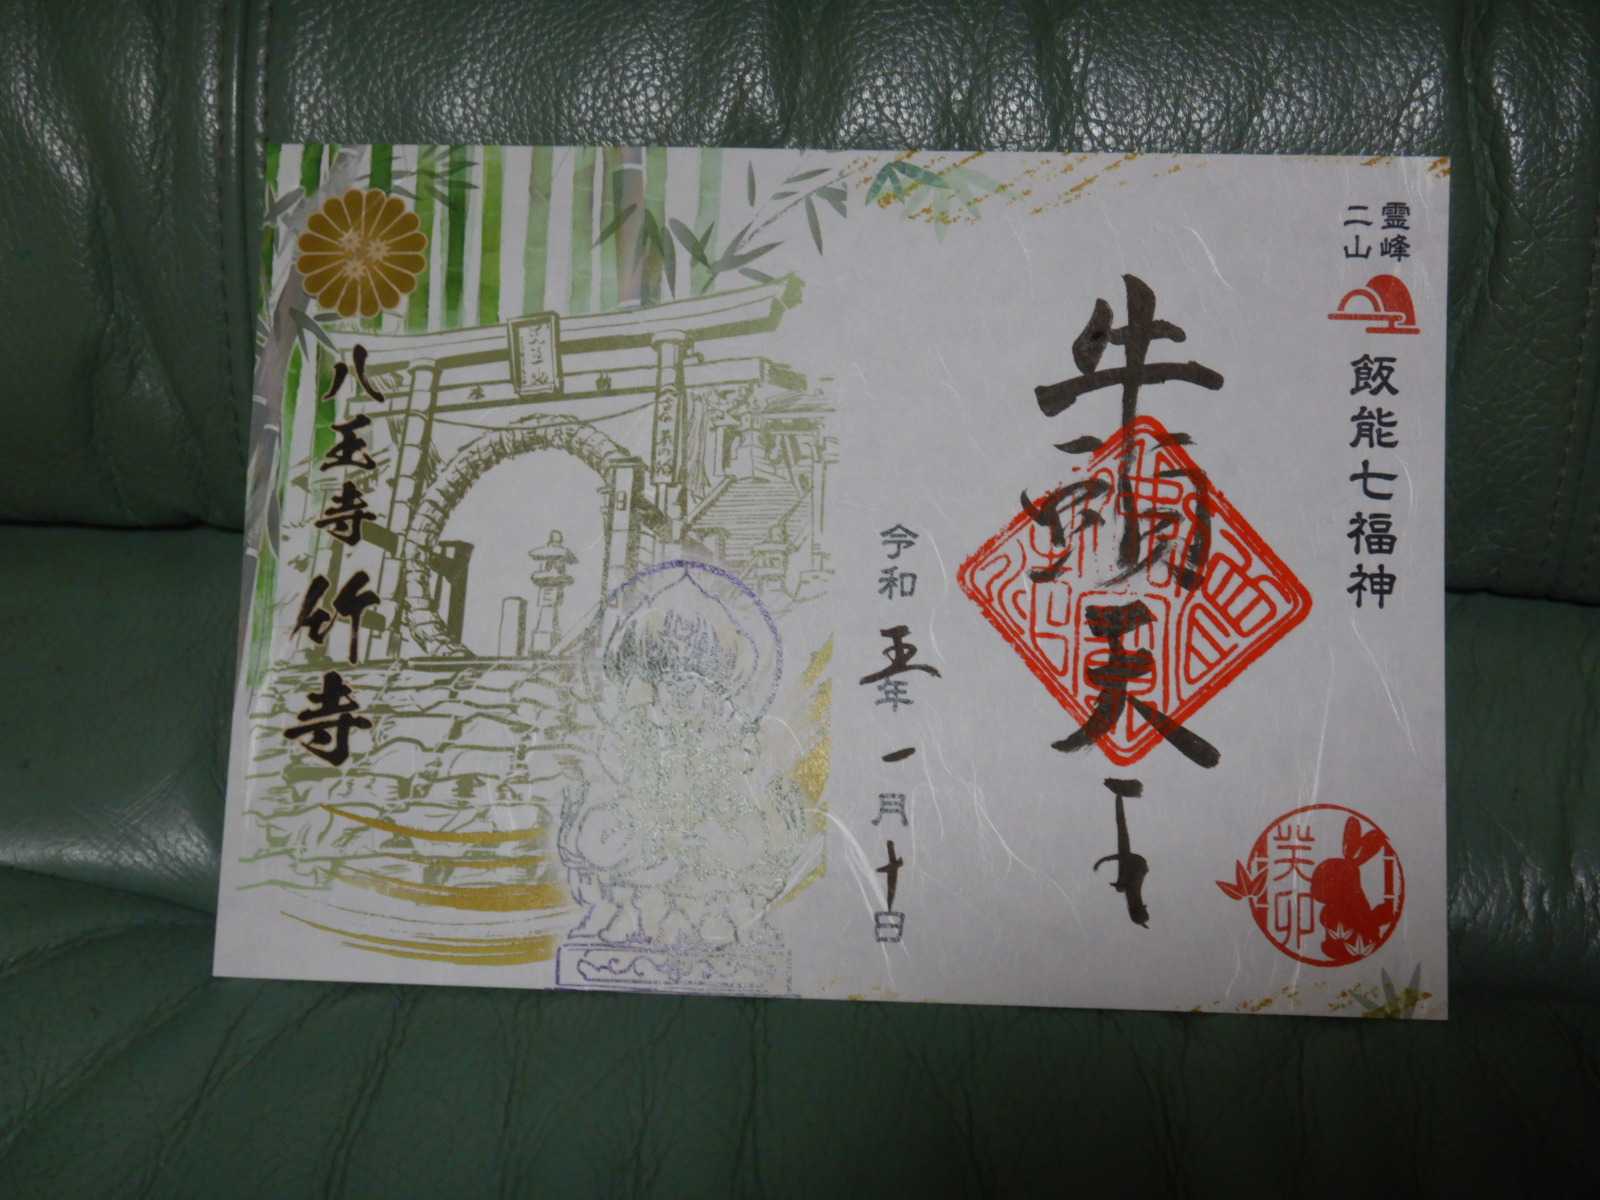 霊峰
二山
飯能七福神
牛頭天王
癸卯
令和五年一月十日
八王寺 竹寺